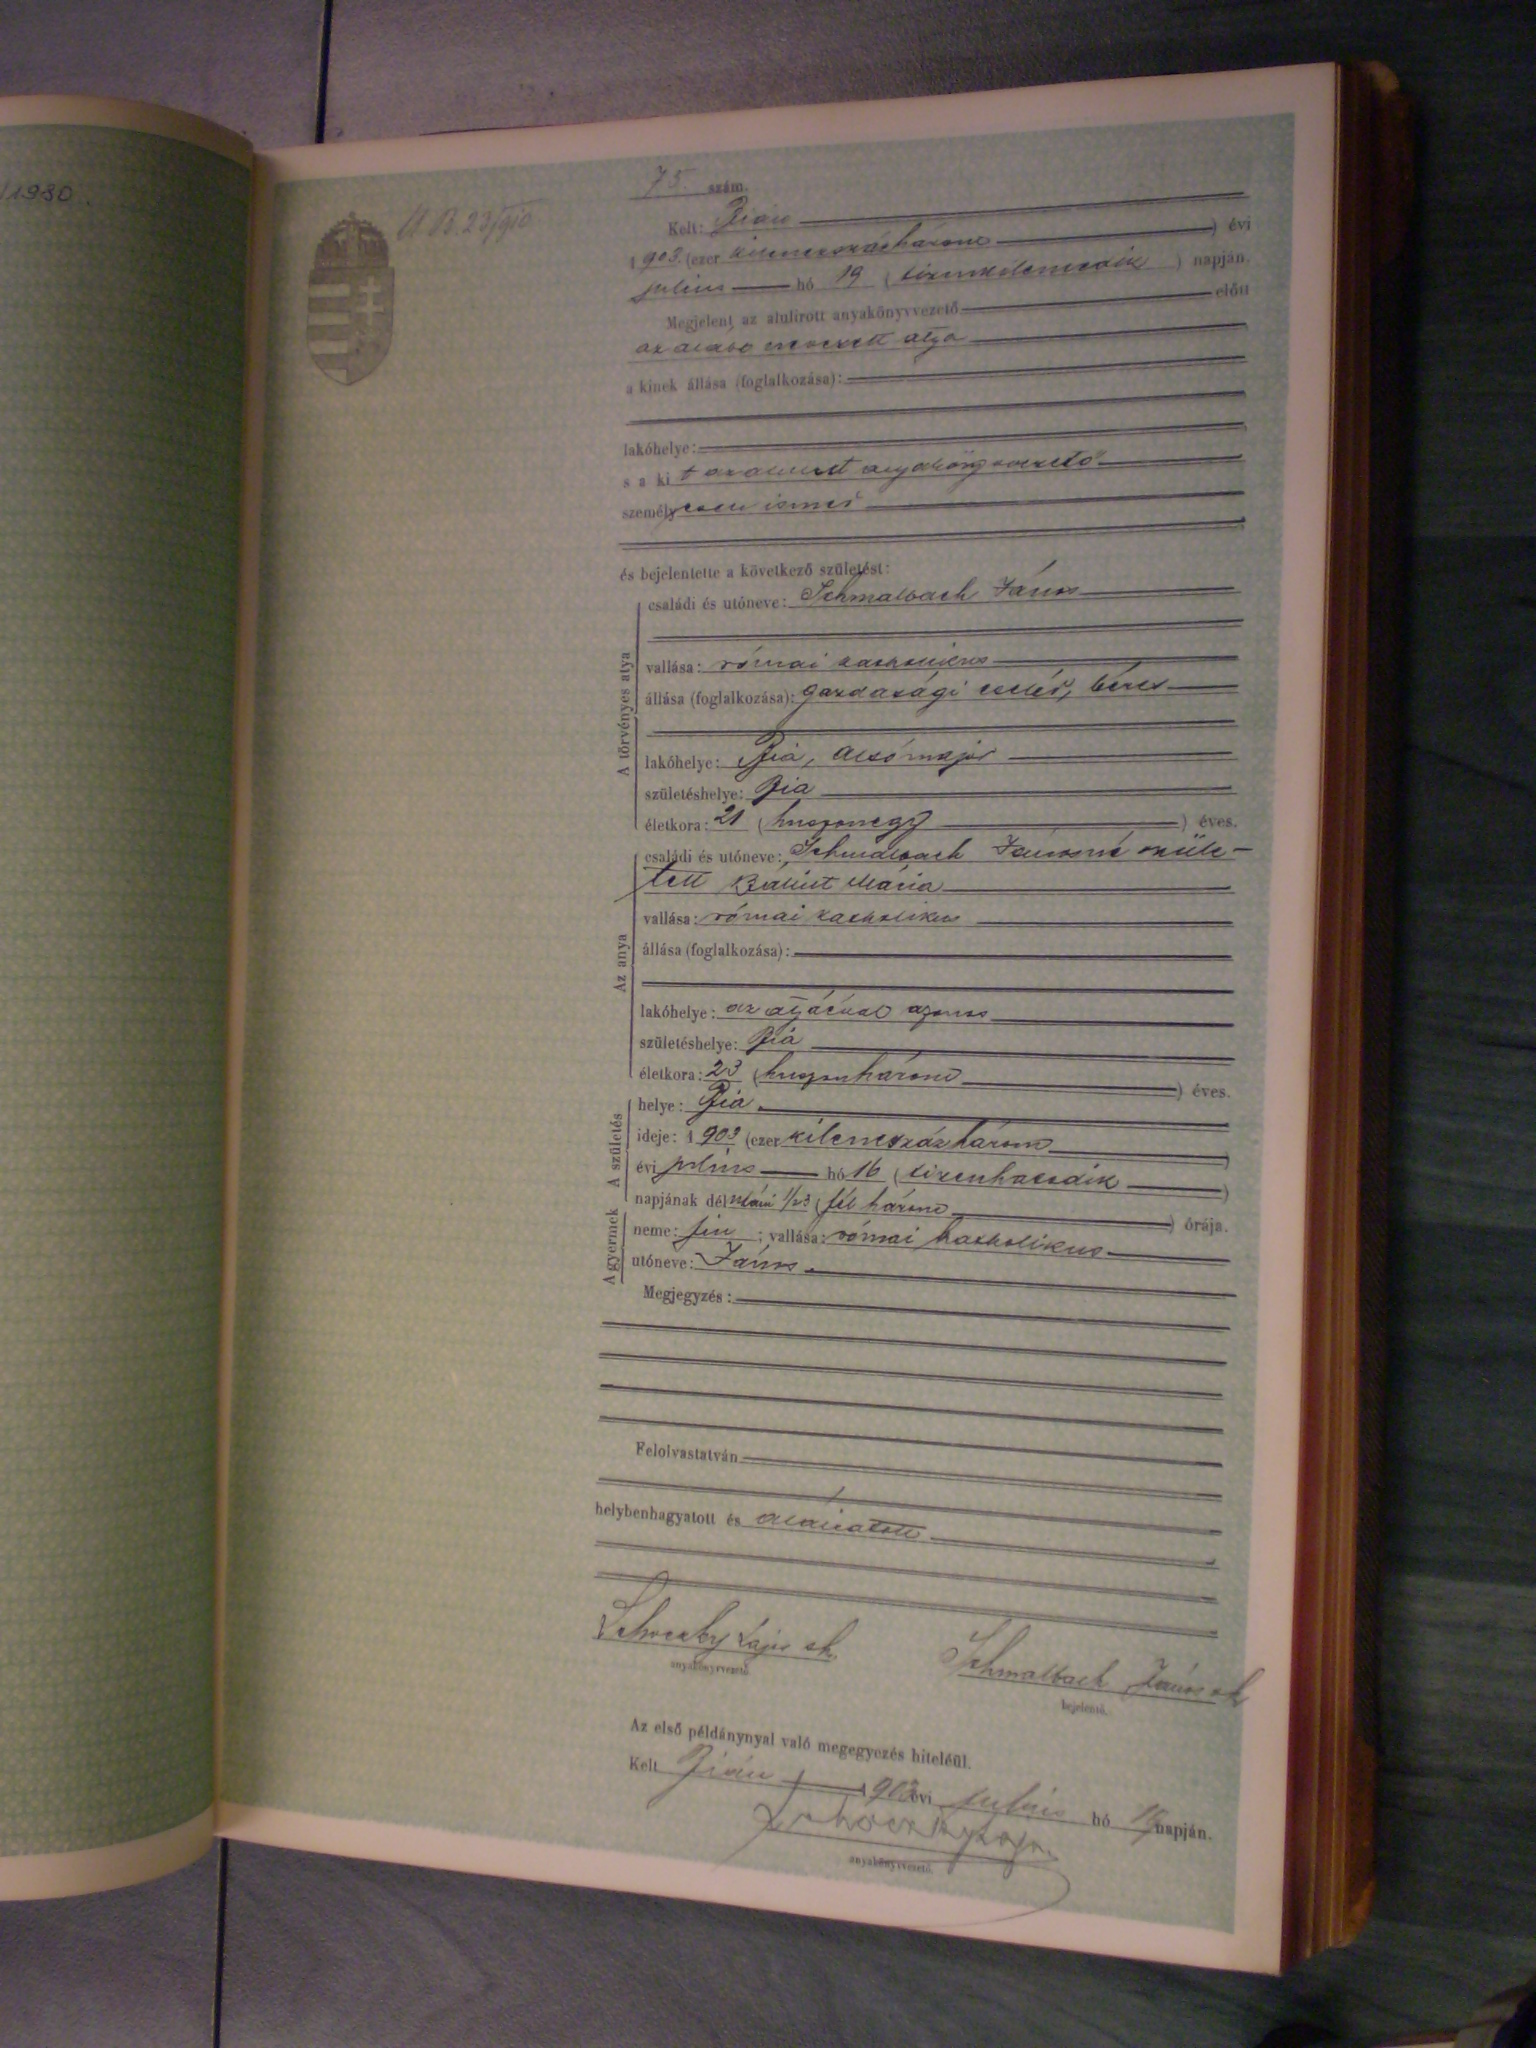 /1930.
75. szám.
Kelt: Bián
1903. (ezer kilencszázhárom) évi
julius hó 19 (tizenkilencedik) napján.
Megjelent az alulirott anyakönyvvezető előtt
az alább nevezett atya
a kinek állása (foglalkozása):
lakóhelye:
s a ki t az alulirott anyakönyvvezető
személyesen ismer
és bejelentette a következő születést:
A törvényes atya
családi és utóneve: Schmalbach János
vallása: római katholikus
állása (foglalkozása): gazdasági cseléd, béres
lakóhelye: Bia, Alsómajor
születéshelye: Bia
életkora: 21 (huszonegy) éves.
Az anya
családi és utóneve: Schmalbach Jánosné szüle-
tett Bálint Mária
vallása: római katholikus
állása (foglalkozása):
lakóhelye: az atyáéval azonos
születéshelye: Bia
életkora: 23 (huszonhárom) éves.
A születés
helye: Bia.
ideje: 1903 (ezer kilencszázhárom)
évi julius hó 16 (tizenhatodik)
napjának délután 1/23 (fél három) órája.
A gyermek
neme: fiu; vallása: római katholikus
utóneve: János.
Megjegyzés:
Felolvastatván
helybenhagyatott és aláiratott
Lajos sk.
anyakönyvvezető.
Schmalbach János sk
bejelentő.
Az első példánynyal való megegyezés hiteléül.
Kelt Bián 1903 évi julius hó 19 napján.
anyakönyvvezető.